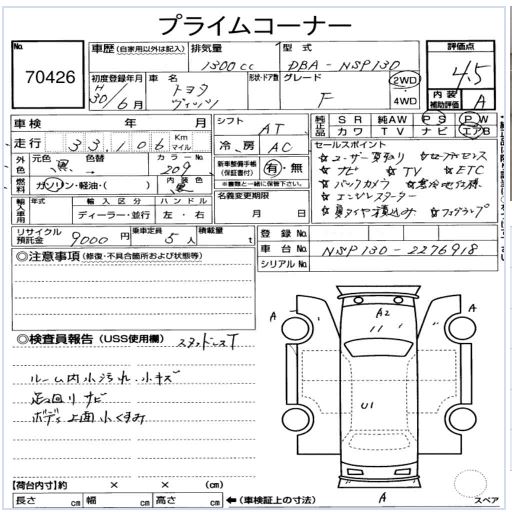 プライムコーナー
No. 70426
車歴 (自家用以外は記入) 排気量 1300cc 型式 DBA-NSP130
初度登録年月 H30/6月 車名 トヨタ ヴィッツ 形状・ドア数 グレード F 2WD 4WD
評価点 4.5
内装補助評価 A
車検 年 月 シフト AT
走行 33,106 Km マイル 冷房 AC
純正品 SR 純AW PS PW
カワ TV ナビ エアB
外色 元色 黒 色替 カラーNo. 209
燃料 ガソリン・軽油・( ) 内装色 黒
新車整備手帳(保証書付) 有・無
※書類と一緒に保管下さい。
セールスポイント
☆ユーザー買取り
☆ナビ ☆TV ☆ETC
☆バックカメラ ☆寒冷地仕様
☆エンジンスターター
☆夏タイヤ積込み ☆フォグランプ
輸入車用 年式 輸入区分 ディーラー・並行 ハンドル 左・右
名義変更期限 月 日
リサイクル預託金 9000円 乗車定員 5人 積載量 t
登録No.
車台No. NSP130-2276918
シリアルNo.
◎注意事項 (修復・不具合箇所および状態等)
◎検査員報告 (USS使用欄) スタッドレスT
ルーム内小汚れ、小キズ
走回りサビ
ボディ上面小くすみ
A A A2
U1
A A
A
スペア
【荷台内寸】約 × ×
長さ cm 幅 cm 高さ cm ←(車検証上の寸法)